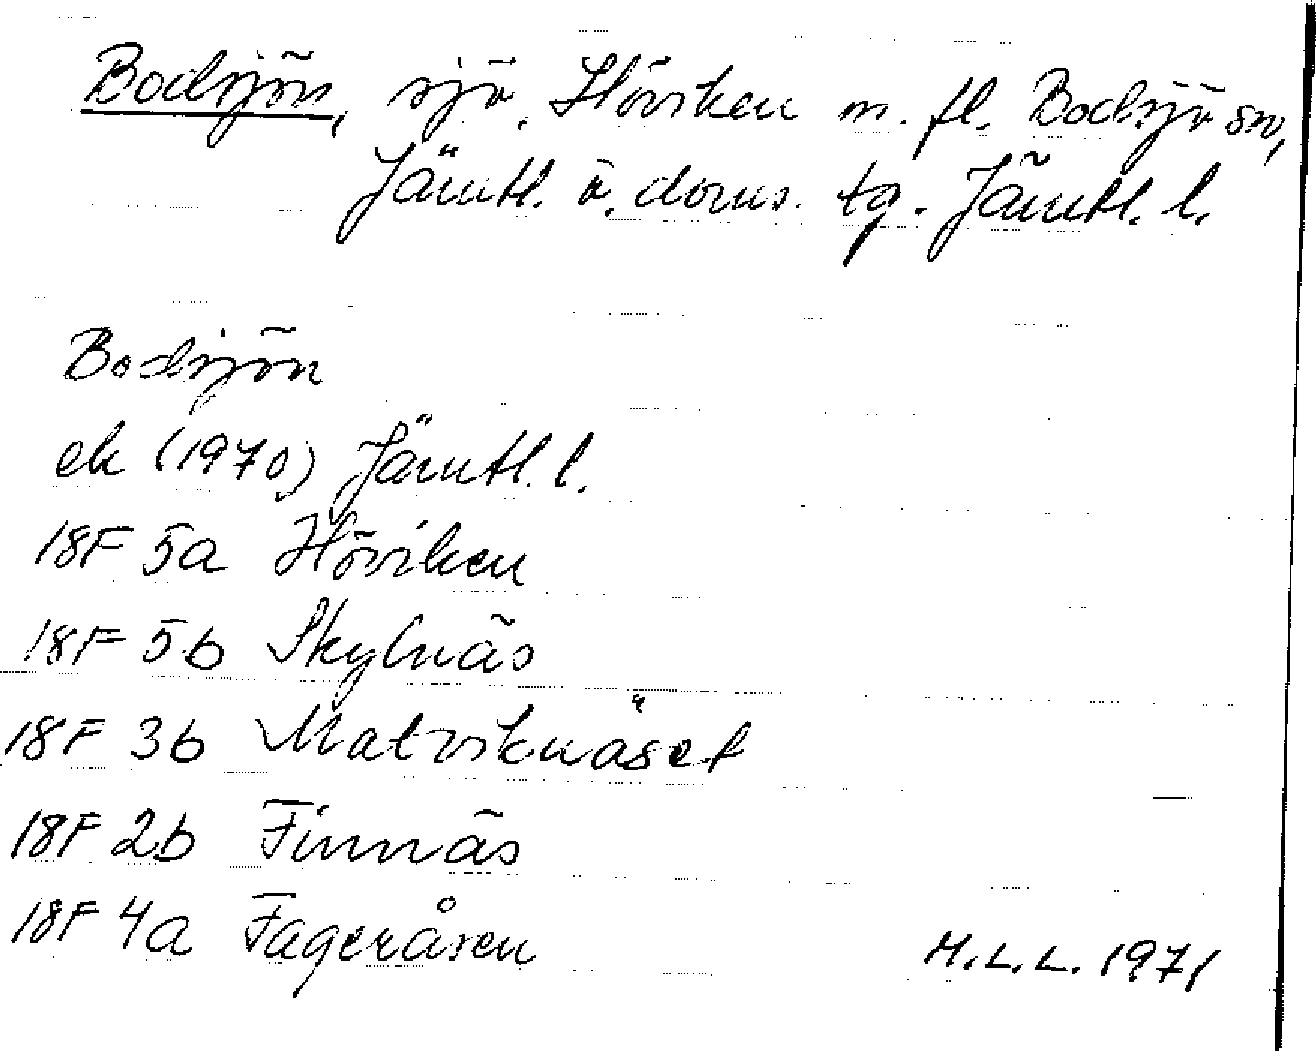 Bodsjön, sjö. Höviken m. fl. Bodsjö sn,
Jämtl. ö. doms. tg. Jämtl. l.
Bodsjön
ek (1970) Jämtl. l.
18F 5a Höviken
18F 5b Skylnäs
18F 3b Matviknäset
18F 2b Finnäs
18F 4a Fageråsen
M.L.L. 1971